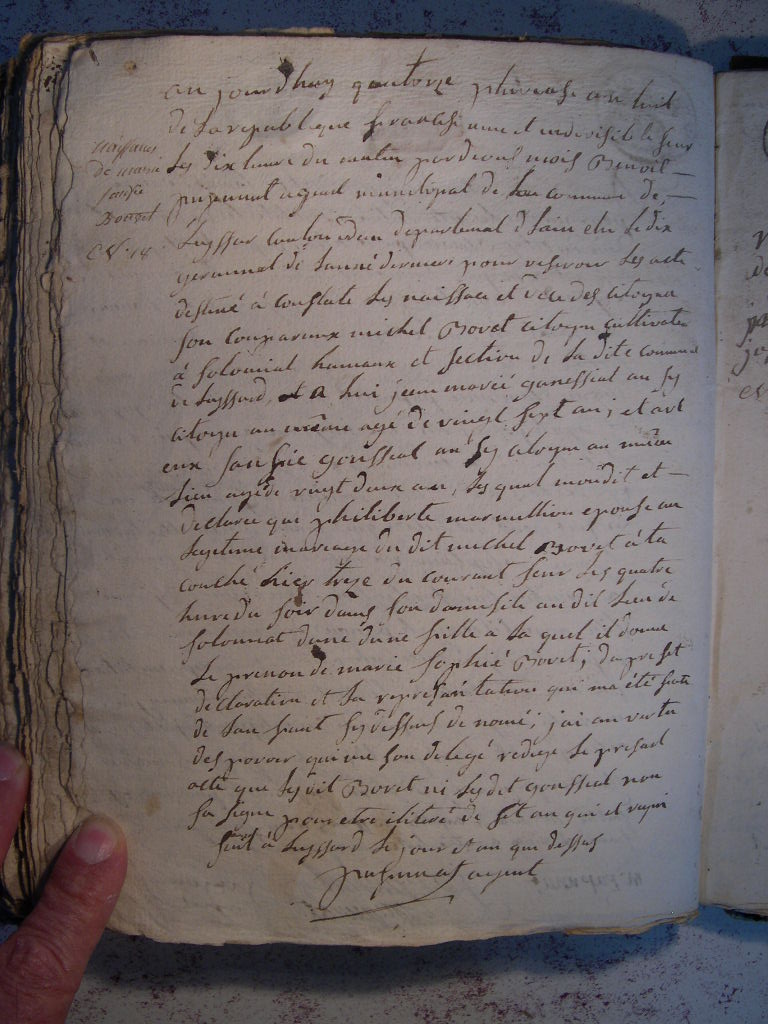 au jourdhuy quatorze pluviose an huit
de la republique francaise une et indivisible sur
les dix heure du matin par devant mois Benoit
agent municipal de la commune de
naissance
de marie
sophie
Bovet
Lhyssard canton departement d Lain elu le dix
germinal de lanné derniere pour resevoir les acte
destiné à constate les naissace et des citoyen
son compareux michel Bovet citoyen cultivate
à solomiat hamaux et section de la dite commune
de Luyssard, et a lui jean marié gousseal au sy
citoyen au même agé de vingt sept an; et avec
eux sausfié gousseal au sy citoyen au même
lieu agé de vingt deux an, les quel mondit et
declaree que philiberte marmillion epouse au
legitime mariage du dit michel Bovet à la
couché hier treze du courant sur les quatre
hure du soir dans son domisile au dit lieu de
solomiat dune fille à la quel il donne
le prenon de marie sophié Bovet; du preset
declaration et la representation qui ma été faite
de lan fant sy dessus de nomé; jai au vertu
des povoir qui me son delegé redige le presad
acte que ledit Bovet ni le dit gousseal non
su signe pour etre iliteré de set an qui
fait à Luyssard le jour et an que dessus
agent